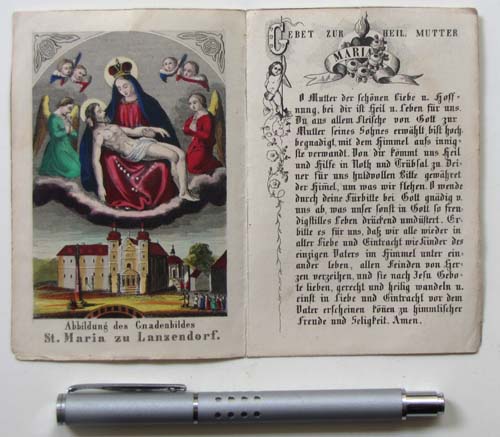 Abbildung des Gnadenbildes
St. Maria zu Lanzendorf.
GEBET ZUR HEIL. MUTTER
MARIA
O Mutter der schönen Liebe u. Hoff=
nung, bei dir ist Heil u. Leben für uns.
Du aus allem Fleische von Gott zur
Mutter seines Sohnes erwählt bist hoch
begnadigt, mit dem Himmel aufs innig=
ste verwandt. Von dir kömmt uns Heil
und Hilfe in Noth und Trübsal zu. Dei=
ner für uns huldvollen Bitte gewähret
der Him̄el, um was wir flehen. O wende
durch deine Fürbitte bei Gott gnädig v.
uns ab, was unser sonst in Gott so freu=
digstilles Leben drückend umdüstert. Er=
bitte es für uns, daß wir alle wieder in
alter Liebe und Eintracht wie Kinder des
einzigen Vaters im Himmel unter ein=
ander leben, allen Feinden von Her=
zen verzeihen, und sie nach Jesu Gebo=
te lieben, gerecht und heilig wandeln u.
einst in Liebe und Eintracht vor dem
Vater erscheinen kön̄en zu himmlischer
Freude und Seligkeit. Amen.